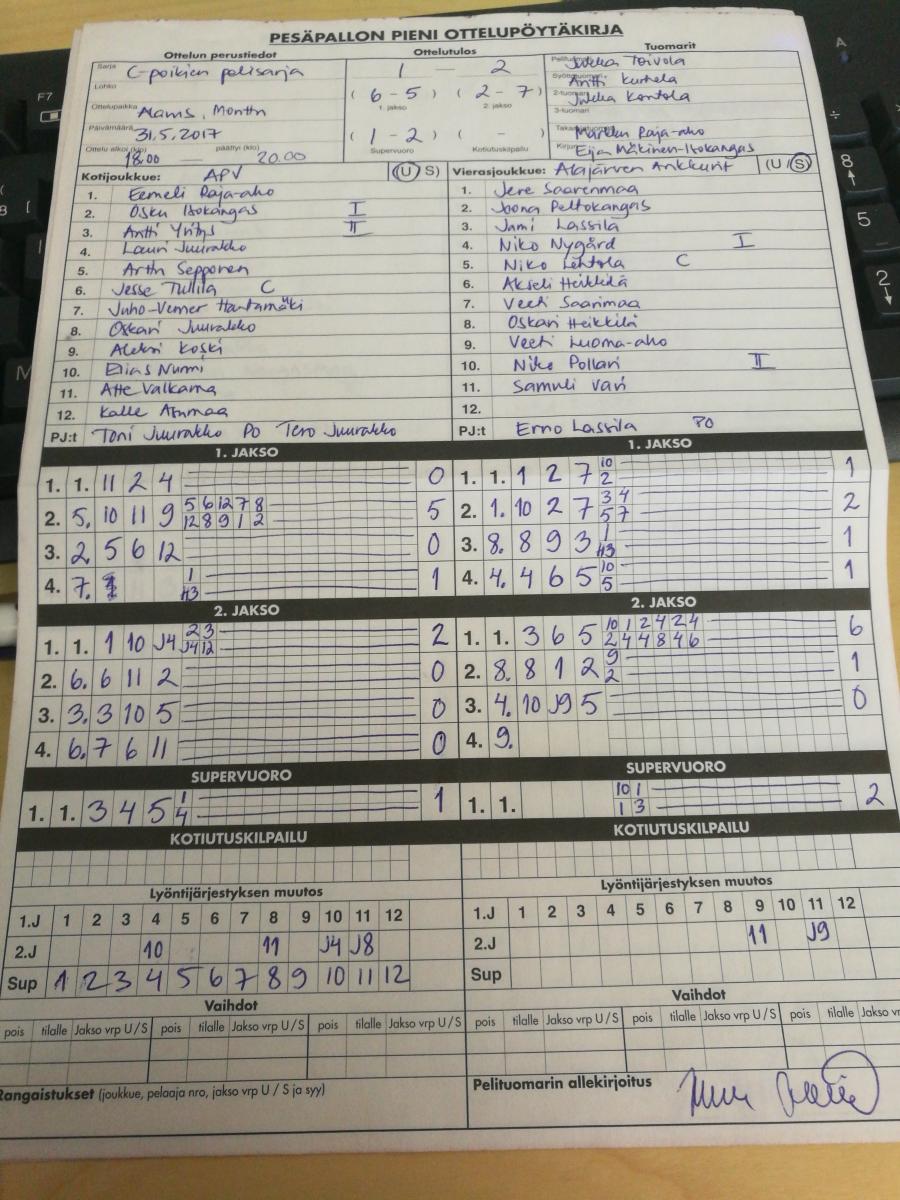 PESÄPALLON PIENI OTTELUPÖYTÄKIRJA
Ottelun perustiedot Ottelutulos Tuomarit
Sarja C-poikien 1 — 2 Jukka Toivola
Lohko Antti Kurkela
(6 - 5) (2 - 7) 2-tuomari Jukka Kontola
1. jakso 2. jakso 3-tuomari
Ottelupaikka Alavus, Monttu
Päivämäärä 31.5.2017 (1 - 2) ( - ) Markku Raja-aho
Ottelu alkoi (klo) päättyi (klo) Supervuoro Kotiutuskilpailu Eija Mäkinen-Isokangas
18.00 — 20.00
Kotijoukkue: APV (U S) Vierasjoukkue: Alajärven Ankkurit (U S)
1. Eemeli Raja-aho 1. Jere Saarenmaa
2. Osku Isokangas I 2. Joona Peltokangas
3. Antti Yritys II 3. Jami Lassila
4. Lauri Juurakko 4. Niko Nygård I
5. Arttu Sepponen 5. Niko Lehtola C
6. Jesse Tullila C 6. Akseli Heikkilä
7. Juho-Verner Hautamäki 7. Veeti Saarimaa
8. Oskari Juurakko 8. Oskari Heikkilä
9. Aleksi Koski 9. Veeti Luoma-aho
10. Elias Nurmi 10. Niko Pollari II
11. Atte Valkama 11. Samuli Vari
12. Kalle 12.
PJ:t Toni Juurakko PO Tero Juurakko PJ:t Erno Lassila PO
1. JAKSO 1. JAKSO
1. 1. 11 2 4 0 1. 1. 1 2 7 10 2 1
2. 5. 10 11 9 5 6 12 7 8 12 8 9 1 2 5 2. 1. 10 2 7 3 4 5 7 2
3. 2. 5 6 12 0 3. 8. 8 9 3 1 H3 1
4. 7. 1 H3 1 4. 4. 4 6 5 10 5 1
2. JAKSO 2. JAKSO
1. 1. 1 10 J4 2 3 J4 12 2 1. 1. 3 6 5 10 1 2 4 2 4 2 4 4 8 4 6 6
2. 6. 6 11 2 0 2. 8. 8 1 2 9 2 1
3. 3. 3 10 5 0 3. 4. 10 J9 5 0
4. 6. 7 6 11 0 4. 9.
SUPERVUORO SUPERVUORO
1. 1. 3 4 5 1 4 1 1. 1. 10 1 1 3 2
KOTIUTUSKILPAILU KOTIUTUSKILPAILU
Lyöntijärjestyksen muutos Lyöntijärjestyksen muutos
1.J 1 2 3 4 5 6 7 8 9 10 11 12 1.J 1 2 3 4 5 6 7 8 9 10 11 12
2.J 10 11 J4 J8 2.J 11 J9
Sup 1 2 3 4 5 6 7 8 9 10 11 12 Sup
Vaihdot Vaihdot
pois tilalle Jakso vrp U/S pois tilalle Jakso vrp U/S pois tilalle Jakso vrp U/S pois tilalle Jakso vrp U/S pois tilalle Jakso vrp U/S pois tilalle
Rangaistukset (joukkue, pelaaja nro, jakso vrp U / S ja syy) Pelituomarin allekirjoitus